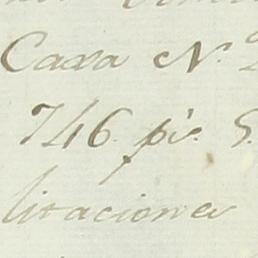 Caxa N.
746. ps. 5.
litaciones